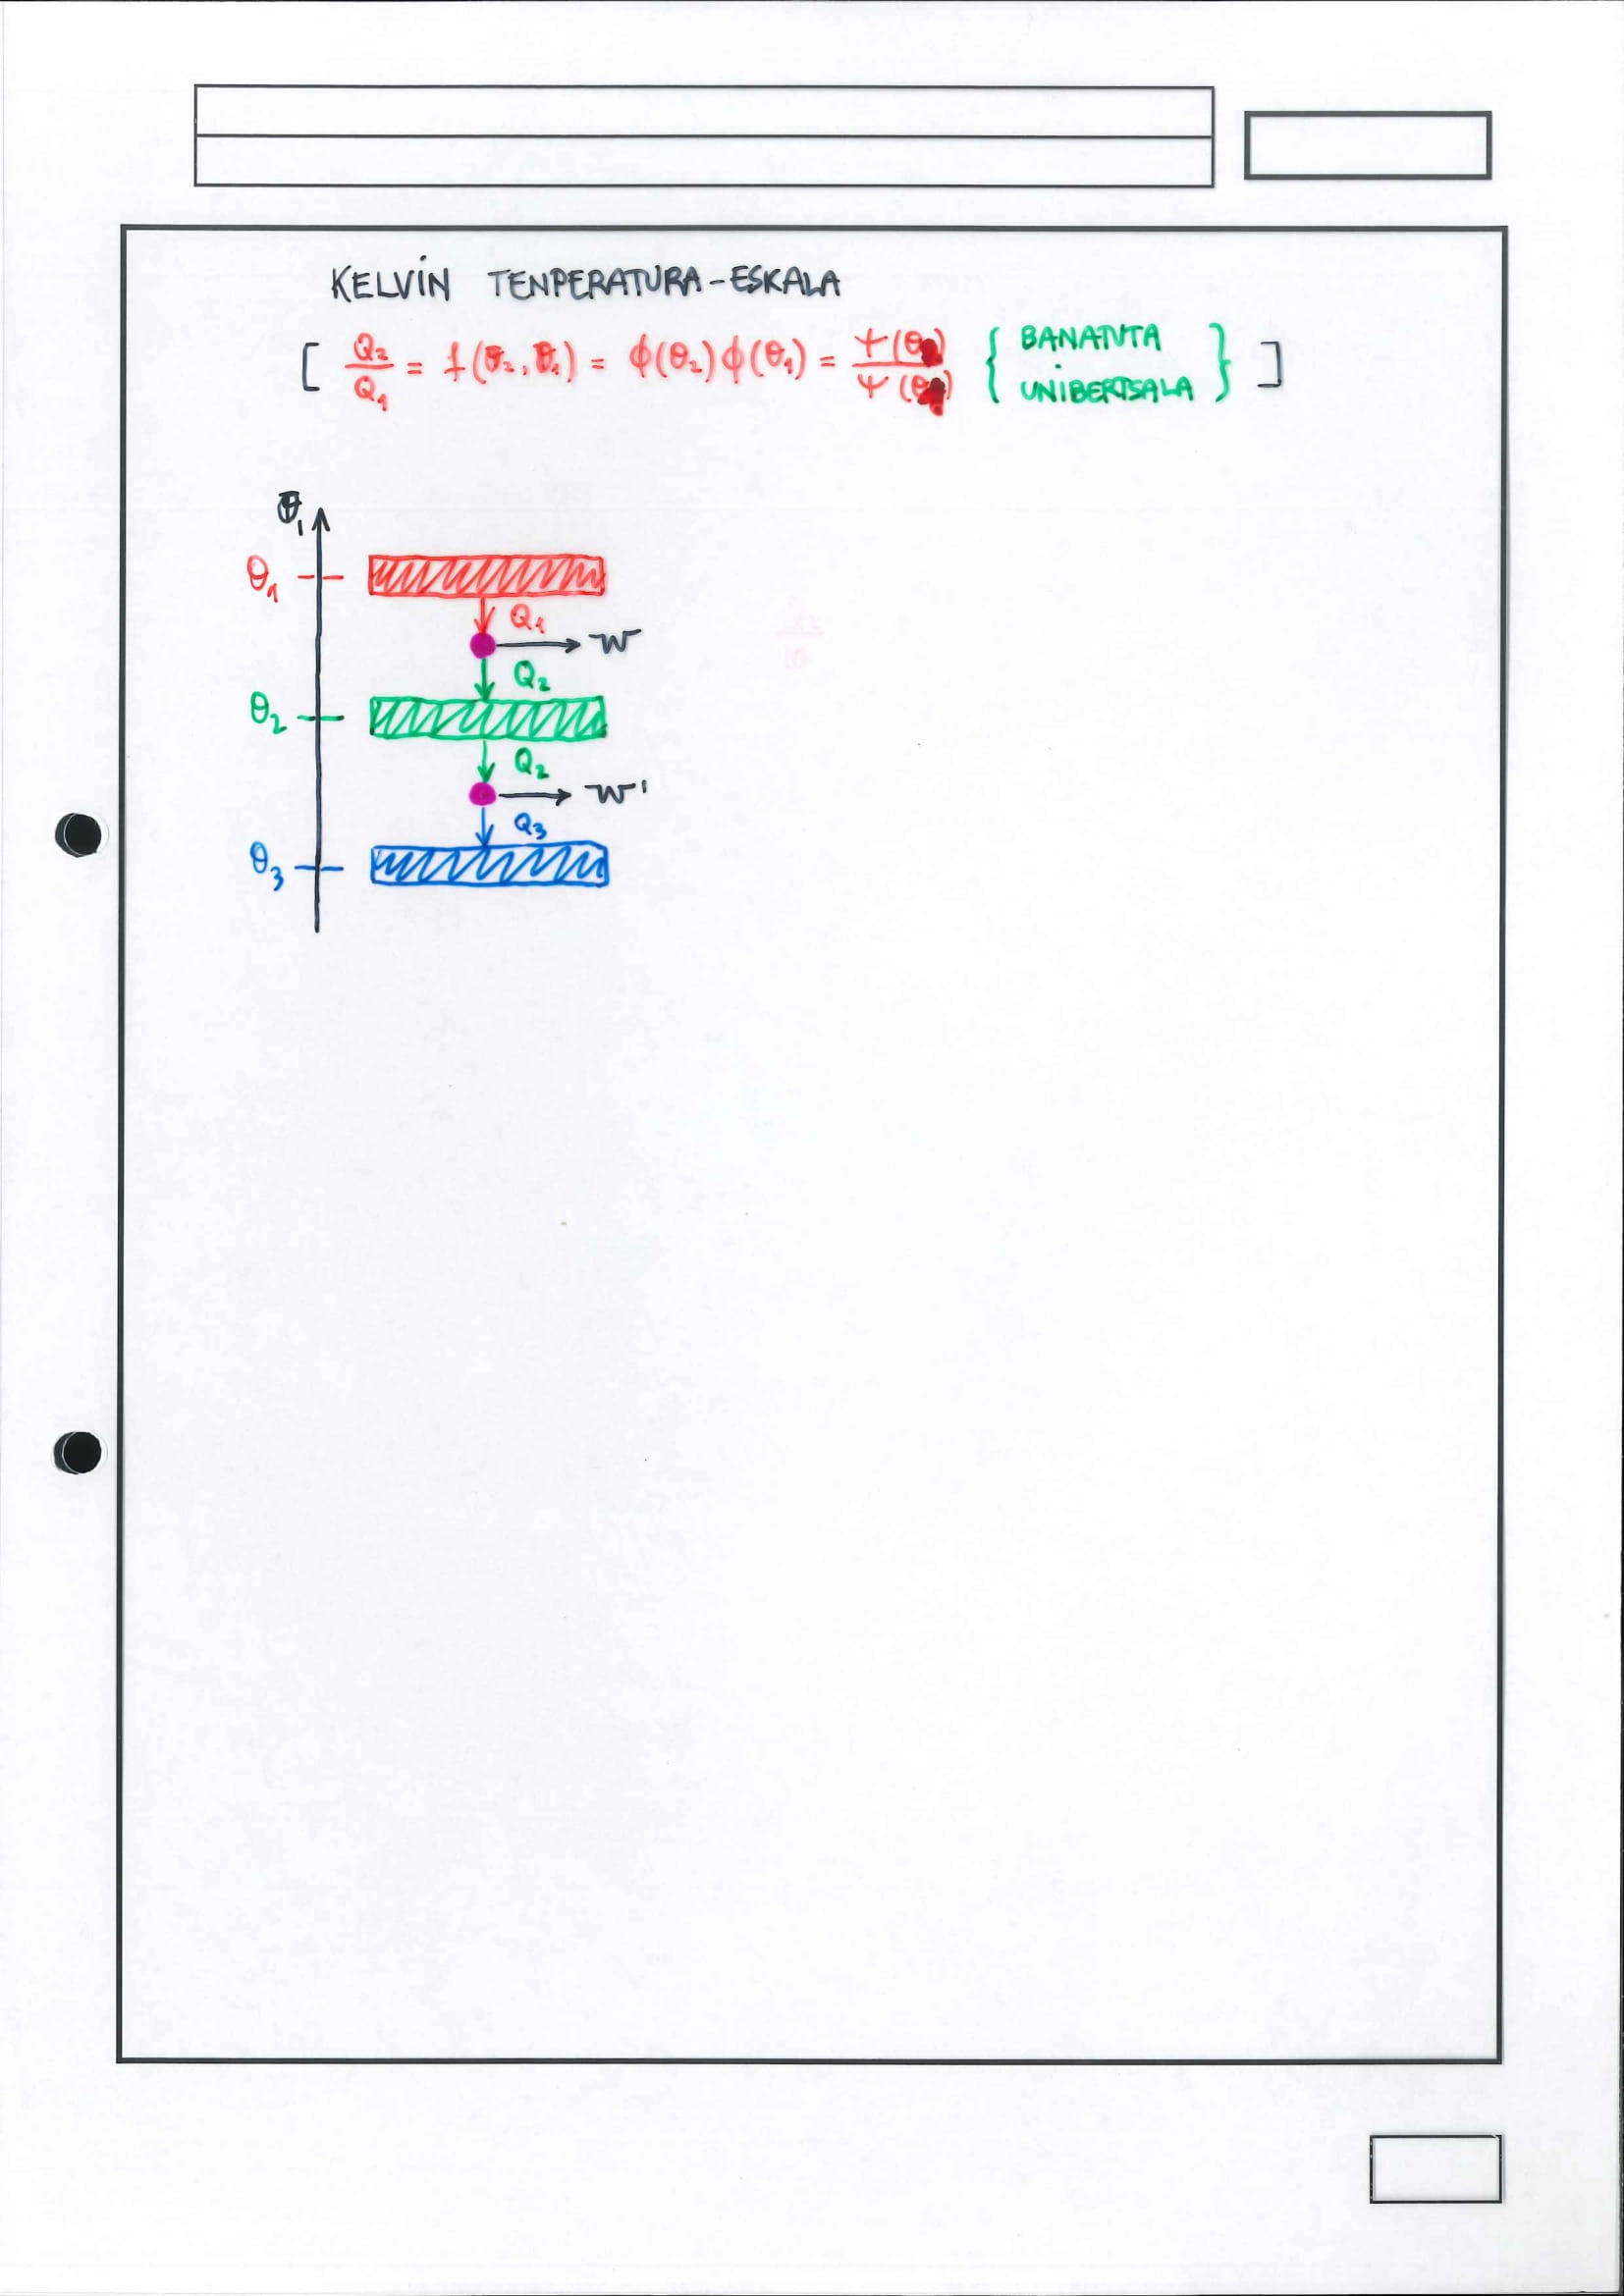 KELVIN TENPERATURA-ESKALA
[ Q₂/Q₁ = f(θ₂, θ₁) = ϕ(θ₂) ϕ(θ₁) = Ψ(θ )/Ψ(θ ) { BANATUTA UNIBERTSALA } ]
θ₁
θ₁
Q₁
W
Q₂
θ₂
Q₂
W'
Q₃
θ₃